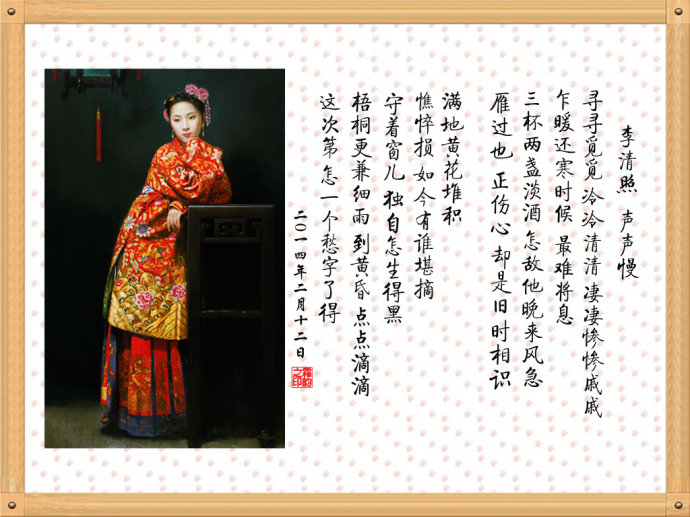 李清照 声声慢
寻寻觅觅 冷冷清清 凄凄惨惨戚戚
乍暖还寒时候 最难将息
三杯两盏淡酒 怎敌他晚来风急
雁过也 正伤心 却是旧时相识
满地黄花堆积
憔悴损 如今有谁堪摘
守着窗儿 独自怎生得黑
梧桐更兼细雨 到黄昏 点点滴滴
这次第 怎一个愁字了得
二〇一四年二月十二日